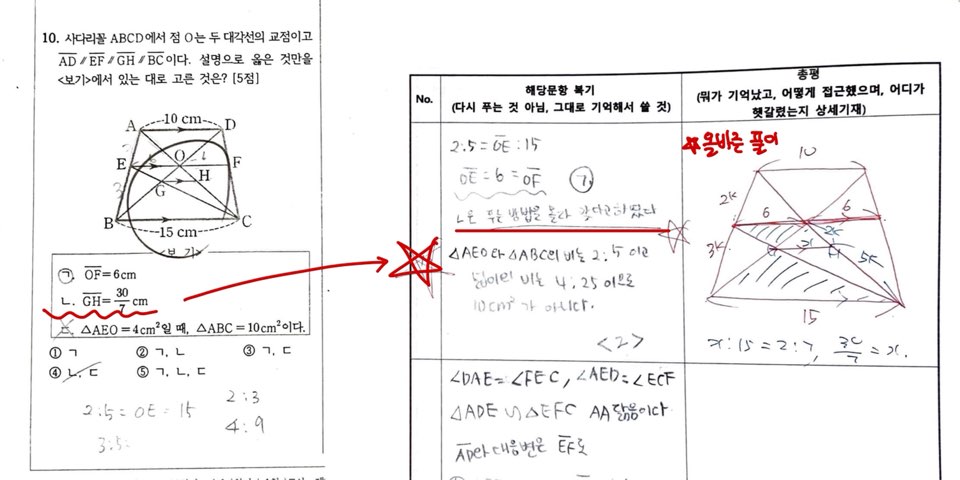 10. 사다리꼴 ABCD에서 점 O는 두 대각선의 교점이고
AD // EF // GH // BC이다. 설명으로 옳은 것만을
<보기>에서 있는 대로 고른 것은? [5점]
A 10 cm D
E O F
G H
B 15 cm C
<보 기>
ㄱ. OF=6cm
ㄴ. GH=30/7 cm
ㄷ. △AEO=4cm²일 때, △ABC=10cm²이다.
① ㄱ ② ㄱ, ㄴ ③ ㄱ, ㄷ
④ ㄴ, ㄷ ⑤ ㄱ, ㄴ, ㄷ
2:5=OE=15
2:3
4:9
3:5:
No.
해당문항 복기
(다시 푸는 것 아님, 그대로 기억해서 쓸 것)
총평
(뭐가 기억났고, 어떻게 접근했으며, 어디가
헷갈렸는지 상세기재)
2:5=OE:15
OE=6=OF ㄱ.
ㄴ은 푸는 방법을 몰라
△AEO와 △ABC의 비는 2:5 이고
넓이의 비는 4:25 이므로
10cm²가 아니다.
<2>
∠DAE=∠FEC, ∠AED=∠ECF
△ADE ∽ △EFC AA닮음이다.
AD와 대응변은 EF로
올바른 풀이
10
2K
6 6
2K
3K
x
5K
15
x:15=2:7, 30/7=x.